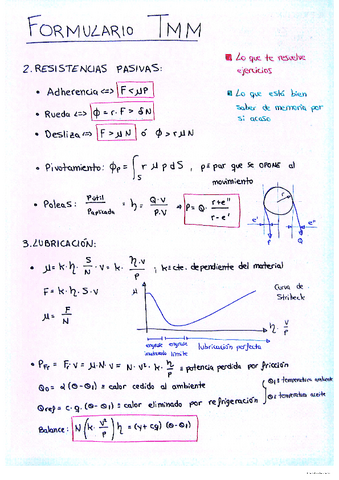 FORMULARIO TMM
Lo que te resuelve
ejercicios
Lo que está bien
saber de memoria por
si acaso
2. RESISTENCIAS PASIVAS:
• Adherencia <=> F < μP
• Rueda <=> ϕ = r·F > δN
• Desliza <=> F > μN ó ϕ > rμN
• Pivotamiento: ϕp = ∫s r μ p dS , p ≡ par que se OPONE al
movimiento
• Poleas: Pútil / Paplicada = η = Q·v / P·v → P = Q · r+e'' / r-e'
r
e' e''
P Q
3. LUBRICACIÓN:
• μ = k·η · S/N · v = k · η·v/P ; k = cte. dependiente del material
F = k·η·S·v
μ = F/N
μ
Curva de
Stribeck
η · v/P
engrase engrase lubricación perfecta
límite
• PFr = Fr·v = μ·N·v = N·v²·k·η/P = potencia perdida por fricción
Q0 = (θ-θ1) = calor cedido al ambiente
Qref = c·q·(θ-θ1) = calor eliminado por refrigeración
θ1 = temperatura ambiente
θ = temperatura aceite
Balance: N(k·v²/P)η = (γ+cq)(θ-θ1)